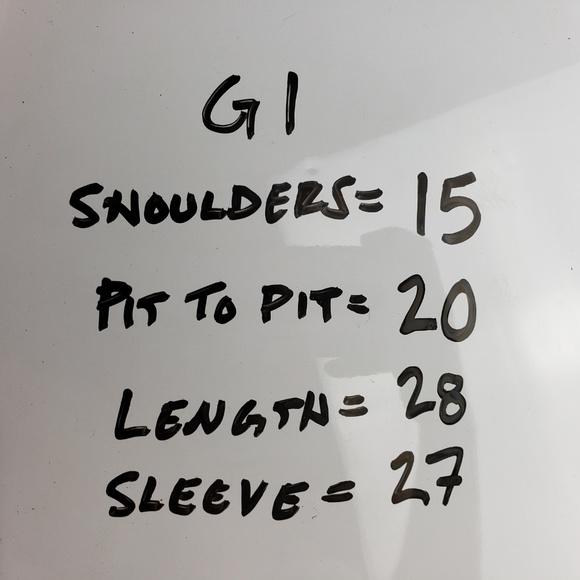 G1
SHOULDERS= 15
PIT TO PIT= 20
LENGTH= 28
SLEEVE= 27